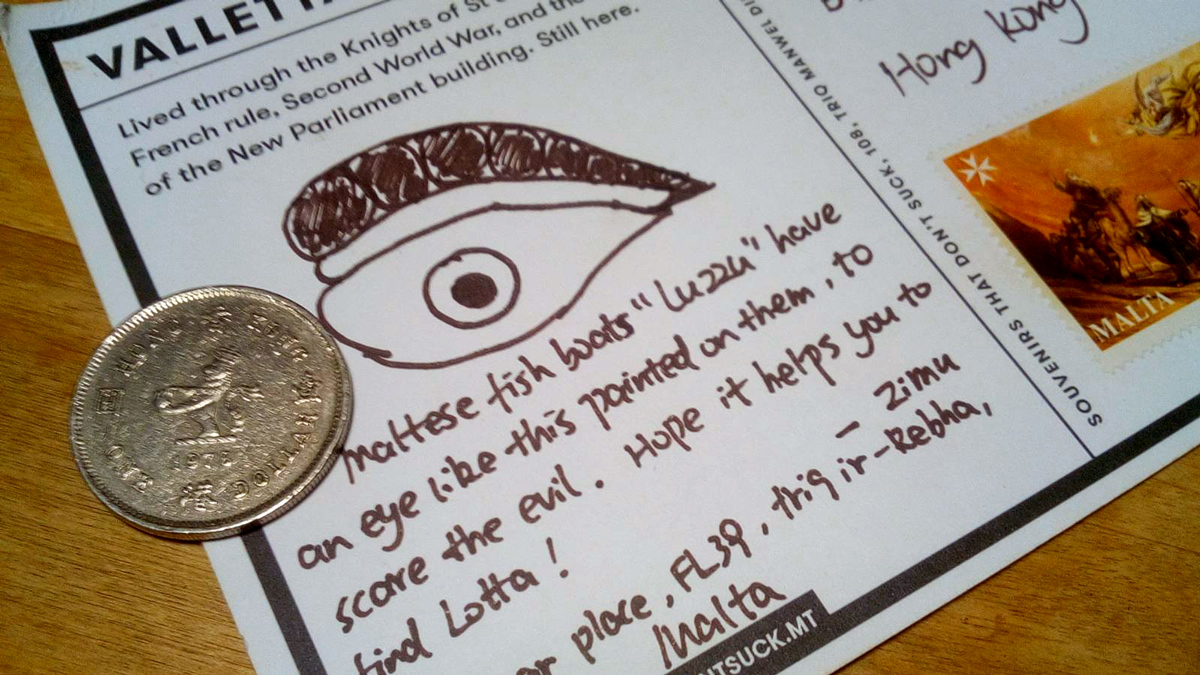 VALLETTA
Lived through the Knights of St
French rule, Second World War, and the
of the New Parliament building. Still here.
Maltese fish boats "Luzzu" have
an eye like this painted on them, to
score the evil. Hope it helps you to
find Lotta!
– Zimu
place, FL39, triq ir-Rebha,
Malta
NTSUCK.MT
SOUVENIRS THAT DON'T SUCK, 108, TRIQ MANWEL DI
Hong Kong
MALTA
HONG KONG
1978
ONE DOLLAR